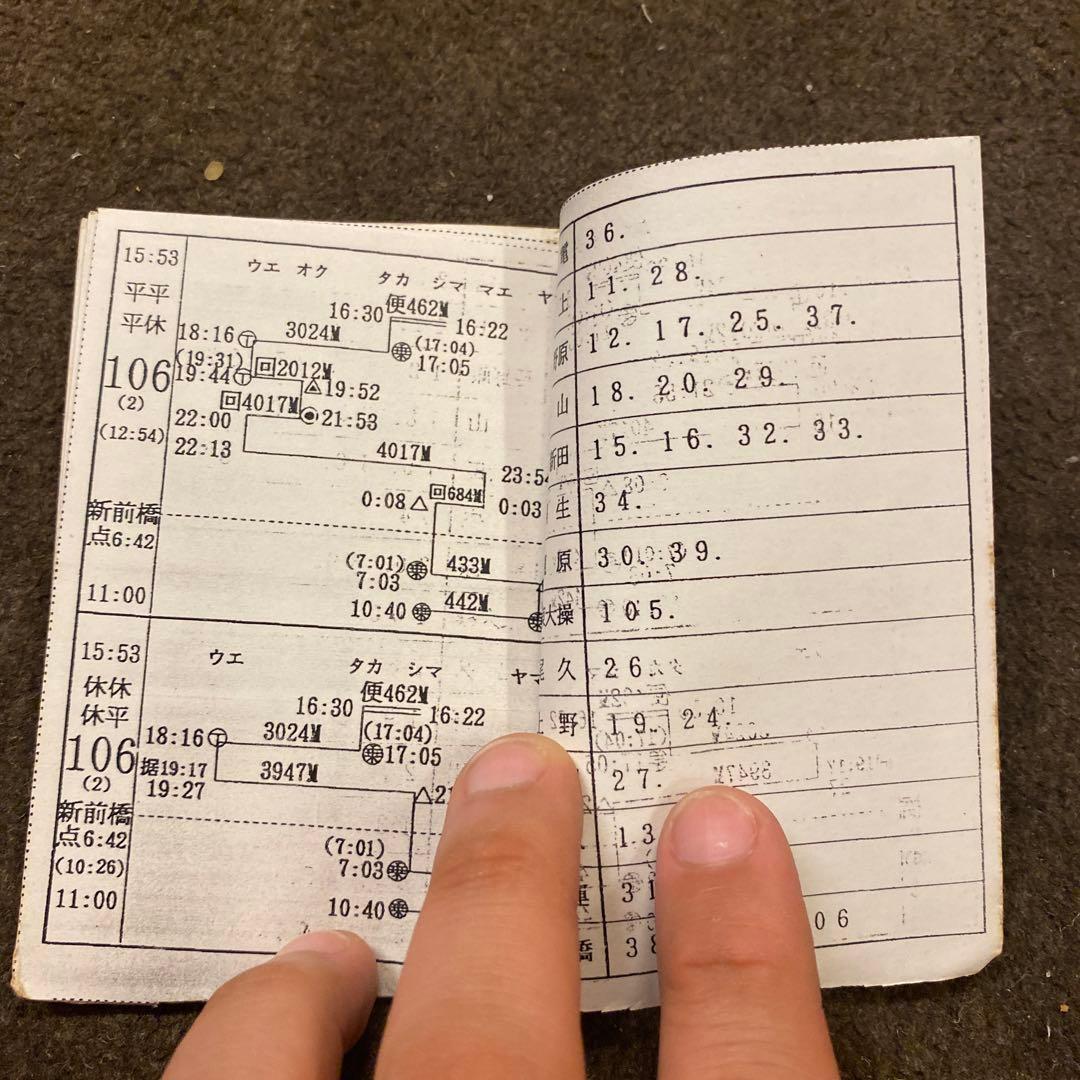 15:53
平平
平休
106
(2)
(12:54)
新前橋
点6:42
11:00
ウエ オク タカ シマ マエ ヤ
16:30 便462M 16:22
18:16 Ⓣ 3024M 乗 (17:04)
17:05
(19:31) 回2012M
19:44 Ⓣ △ 19:52
回4017M
22:00 ◉ 21:53
22:13 4017M
23:54
0:08 △ 回684M 0:03
(7:01) 乗 433M
7:03
10:40 乗 442M 乗
15:53
休休
休平
106
(2)
新前橋
点6:42
(10:26)
11:00
ウエ タカ シマ
16:30 便462M 16:22
18:16 Ⓣ 3024M (17:04)
乗 17:05
据19:17 3947M
19:27
(7:01)
7:03 乗
10:40 乗
36.
上 11. 28.
原 12. 17. 25. 37.
山 18. 20. 29.
新田 15. 16. 32. 33.
生 34.
原 30. 39.
大操 105.
久 26.
野 19. 24.
27.
13
31
橋 38 06